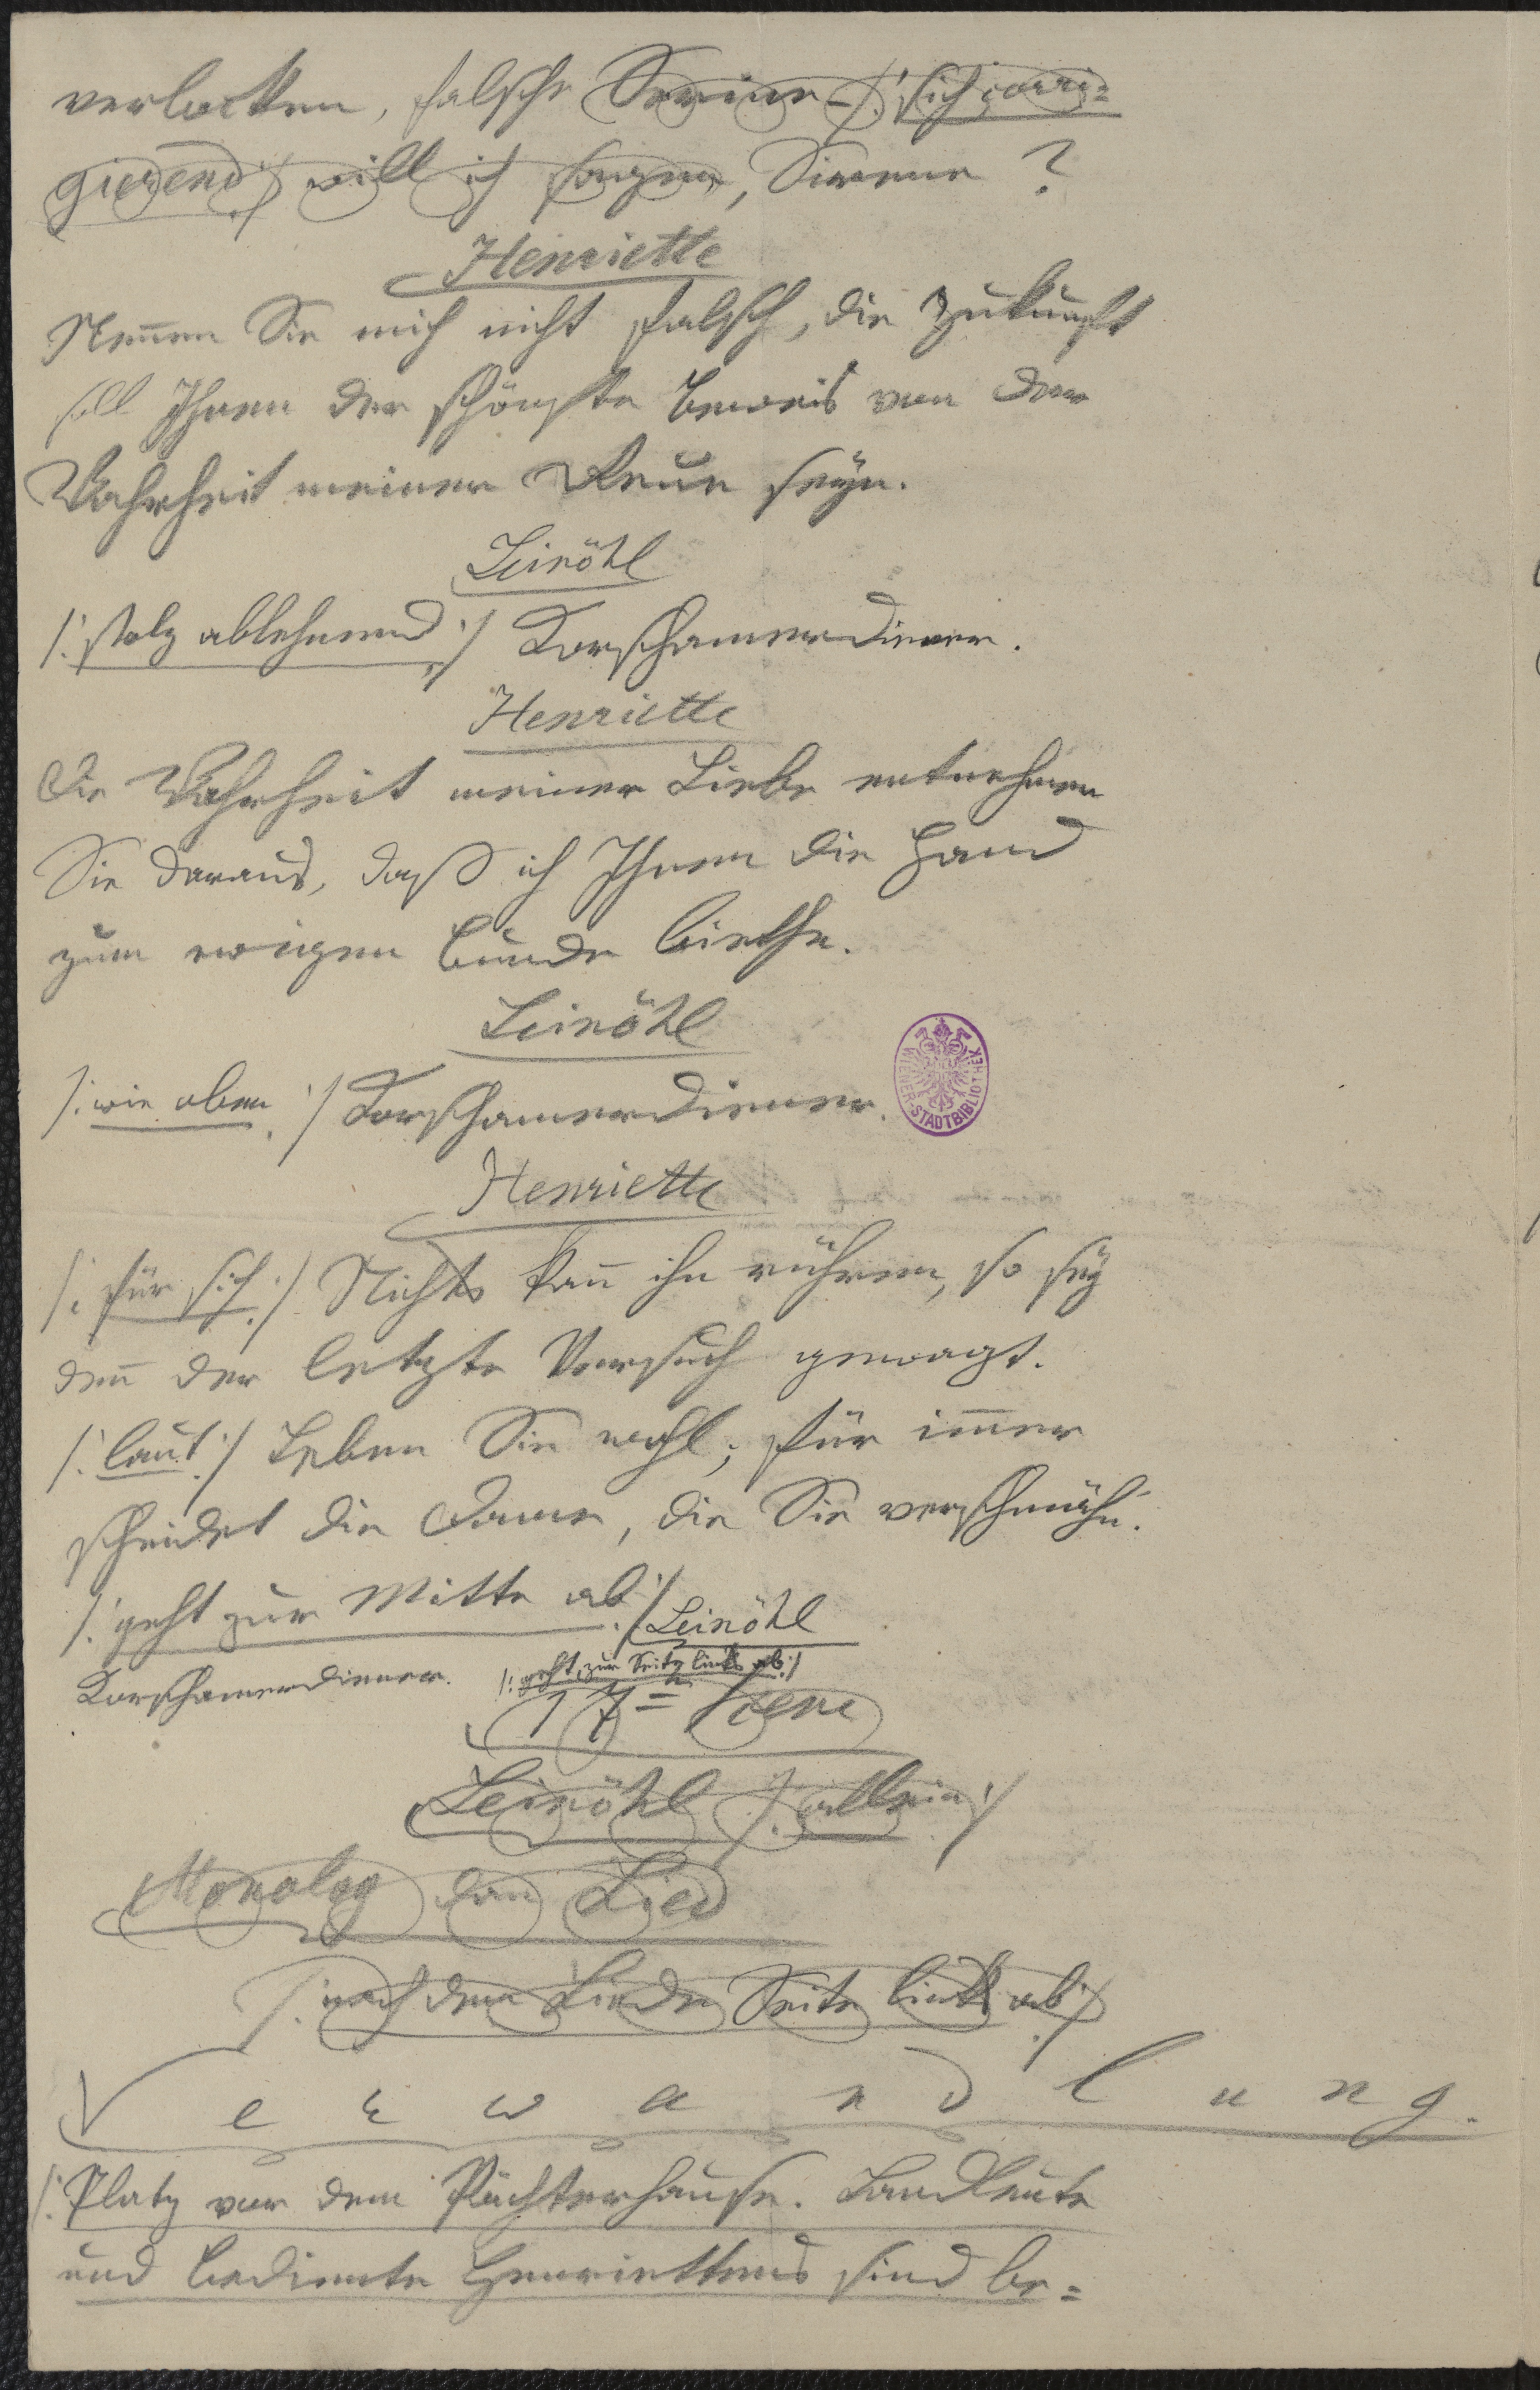 verlocken, falsche Serine – /: sich corri=
gierend :/ will ich sagen, Sirene ?
Henriette
Nen̄en Sie mich nicht falsch, die Zukunft
soll Ihnen der schönste Beweis von der
Wahrheit meiner Reue seÿn.
Leinöhl
/: stolz ablehnend :/ Korschamerdiener.
Henriette
Die Wahrheit meiner Liebe entnehmen
Sie daraus, daß ich Ihnen die Hand
zum ewigen Bunde biethe.
Leinöhl
/: wie oben :/ Korschamerdiener.
WIENER-STADTBIBLIOTHEK
Henriette
/: für sich :/ Nichts kan̄ ihn rühren, so seÿ
den̄ der letzte Versuch gewagt.
/: laut :/ Leben Sie wohl; für im̄er
scheidet die Dame, die Sie verschmäh'n.
/: geht zur Mitte ab :/ Leinöhl
Korschamerdiener. /: geht zur Seite links ab :/
17= Scene
Leinöhl /: allein :/
Monolog dan̄ Lied
/: nach dem Liede Seite links ab :/
Verwandlung.
/: Platz vor dem Pächterhause. Landleute
und Bediente Henriettens sind be=